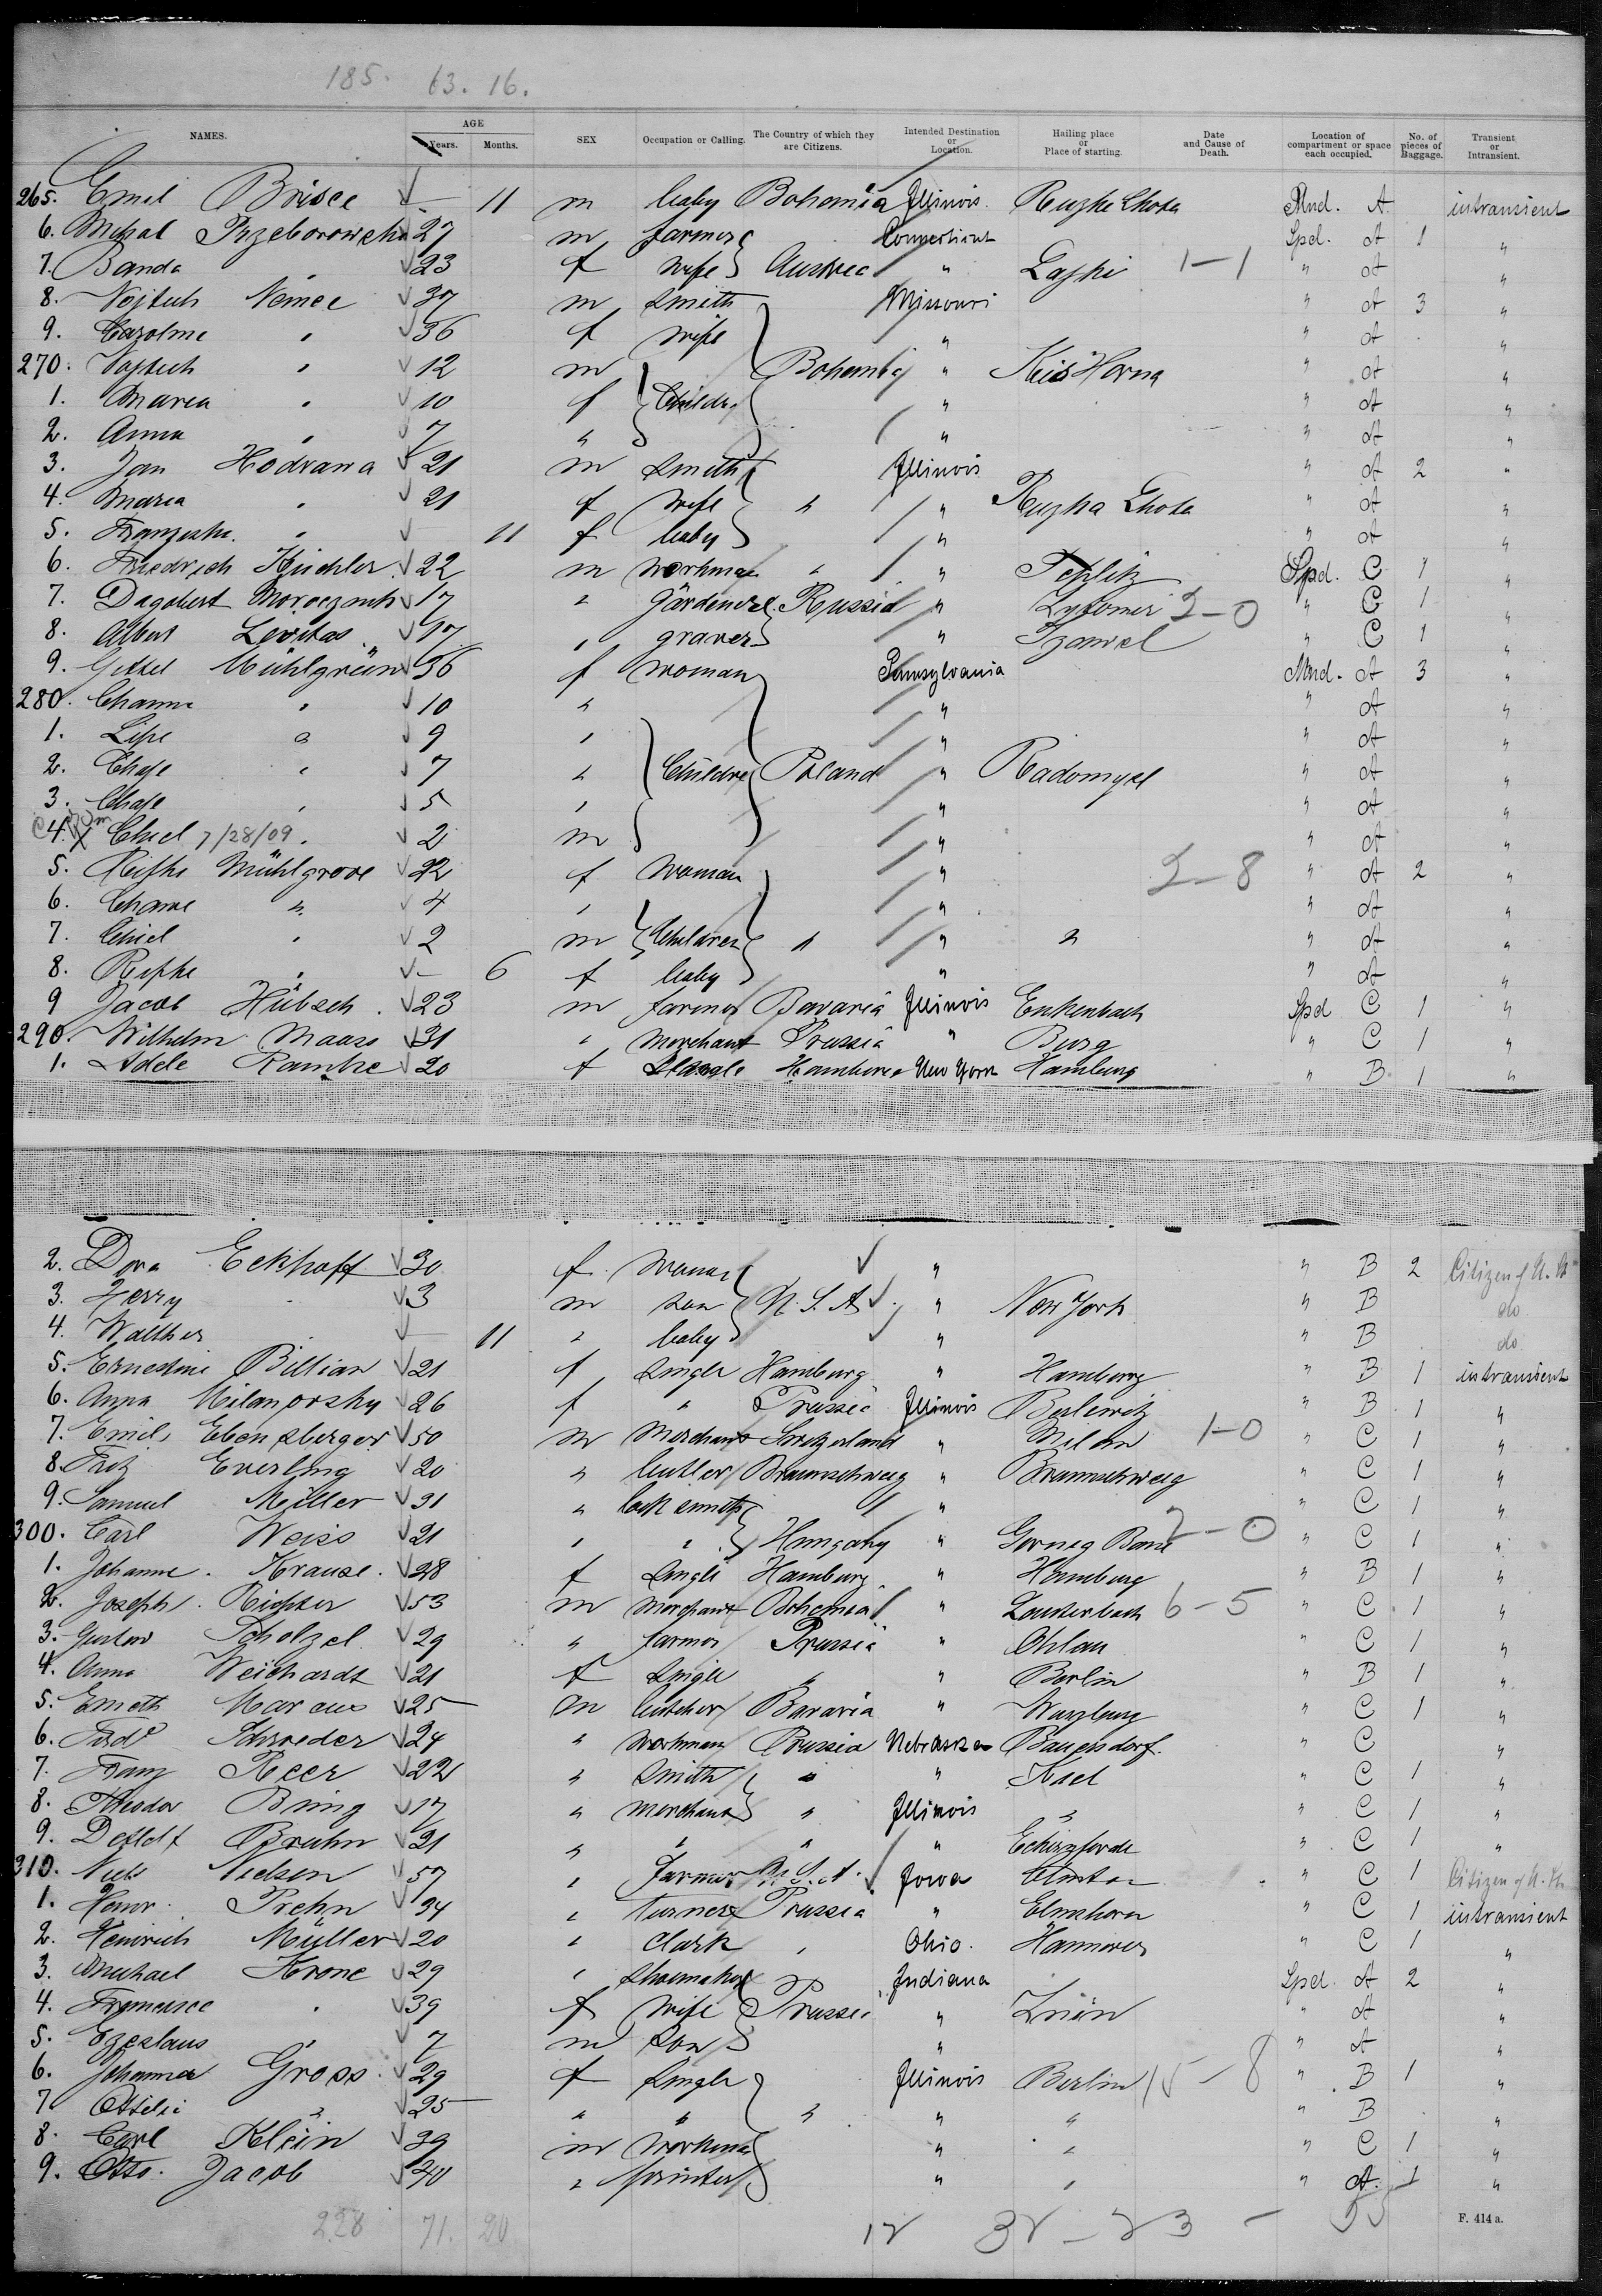 185. 63. 16.
NAMES. AGE Years. Months. SEX Occupation or Calling. The Country of which they are Citizens. Intended Destination or Location. Hailing place or Place of starting. Date and Cause of Death. Location of compartment or space each occupied. No. of pieces of Baggage. Transient or Intransient.
265. Emil Brisce — 11 m baby Bohemia Illinois. Ruzhe Lhota Mnd. A intransient
6. Michal 27 m farmer Connecticut Spd. A 1 "
7. Banda " 23 f wife Austria " Laszki 1-1 " A "
8. Vojtech Nemec 37 m smith Missouri " A 3 "
9. Caroline " 36 f wife " " A "
270. Vojtech " 12 m Bohemia " Kis Horna " A "
1. Maria " 10 f Childr. " " A "
2. Anna " 7 " " " A "
3. Jan Hodrawa 21 m smith Illinois " A 2 "
4. Maria " 21 f wife " " Ruzha Lhota " A "
5. Franzeska " 11 f baby " " A "
6. Friedrich Küchler 22 m workman " " Teplitz Spd. C 1 "
7. Dagobert 17 " gärdener Russia " 2-0 " C 1 "
8. Albert Levitas 17 " graver " " C 1 "
9. Gittel Mühlgrün 36 f woman Pennsylvania Mnd. A 3 "
280. Channe " 10 " " " A "
1. Lipe " 9 " " " A "
2. Chaje " 7 " Childre Poland " Radomysl " A "
3. Chaje " 5 " " " A "
4. Chiel 7/28/09 " 2 m " " A "
5. Rifke Mühlgrove 22 f Woman " 2-8 " A 2 "
6. Chane " 4 " " " A "
7. Chiel " 2 m Children " " " " A "
8. Rifke " — 6 f baby " " A "
9 Jacob Hübsch 23 m farmer Bavaria Illinois Enkenbach Spd C 1 "
290. Wilhelm Maass 31 " Merchant Prussia " Burg " C 1 "
1. Adele Rambke 20 f Single Hamburg New York Hamburg " B 1 "
2. Dora Eckhoff 30 f. woman " " B 2 Citizen of U. St
3. Herry " 3 m son U. S. A. " New York " B do
4. Walther — 11 " baby " " B do
5. Ernestine Billian 21 f single Hamburg " Hamburg " B 1 intransient
6. Anna Milanorsky 26 f " Prussia Illinois " B 1 "
7. Emil Ebensberger 50 m Merchant Switzerland " Milan 1-0 " C 1 "
8. Fritz Everling 20 " butler Braunschweig " Braunschweig " C 1 "
9. Samuel Müller 31 " lock smith " " C 1 "
300. Carl Weiss 21 " " Hungary " 2-0 " C 1 "
1. Johanne Krause. 28 f single Hamburg " Hamburg " B 1 "
2. Joseph Richter 53 m Merchant Bohemia " Lauterbach 6-5 " C 1 "
3. Gustav Scholzel 29 " farmer Prussia " Ohlau " C 1 "
4. Anna Weichardt 21 f single " " Berlin " B 1 "
5. Marcus 25 m butcher Bavaria " Wurzburg " C 1 "
6. Ferd. Schroeder 24 " workman Prussia Nebraska Bauersdorf. " C "
7. Franz Reer 22 " smith " " Kiel " C 1 "
8. Theodor Bring 17 " merchant " Illinois " " C 1 "
9. Detlef Bruhn 21 " " " " " C 1 "
310. Niels Nielsen 57 " Farmer U. S. A. Iowa " C 1 Citizen of U. St.
1. Heinr. Prehn 34 " turner Prussia " Elmshorn " C 1 intransient
2. Heinrich Müller 20 " Clark " Ohio. Hannover " C 1 "
3. Michael Krone 29 " shoemaker Indiana Spd. A 2 "
4. Francisca " 39 f wife Prussia " Znin " A "
5. " 7 m son " " A "
6. Johanna Gross 29 f single Illinois Berlin 15-8 " B 1 "
7 Ottilie " 25 " " " " " " B "
8. Carl Klein 39 m workman " " " C 1 "
9. Otto. Jacob 40 " printer " " " A. 1 "
228 71. 20 12 32-23 - 55 F. 414 a.